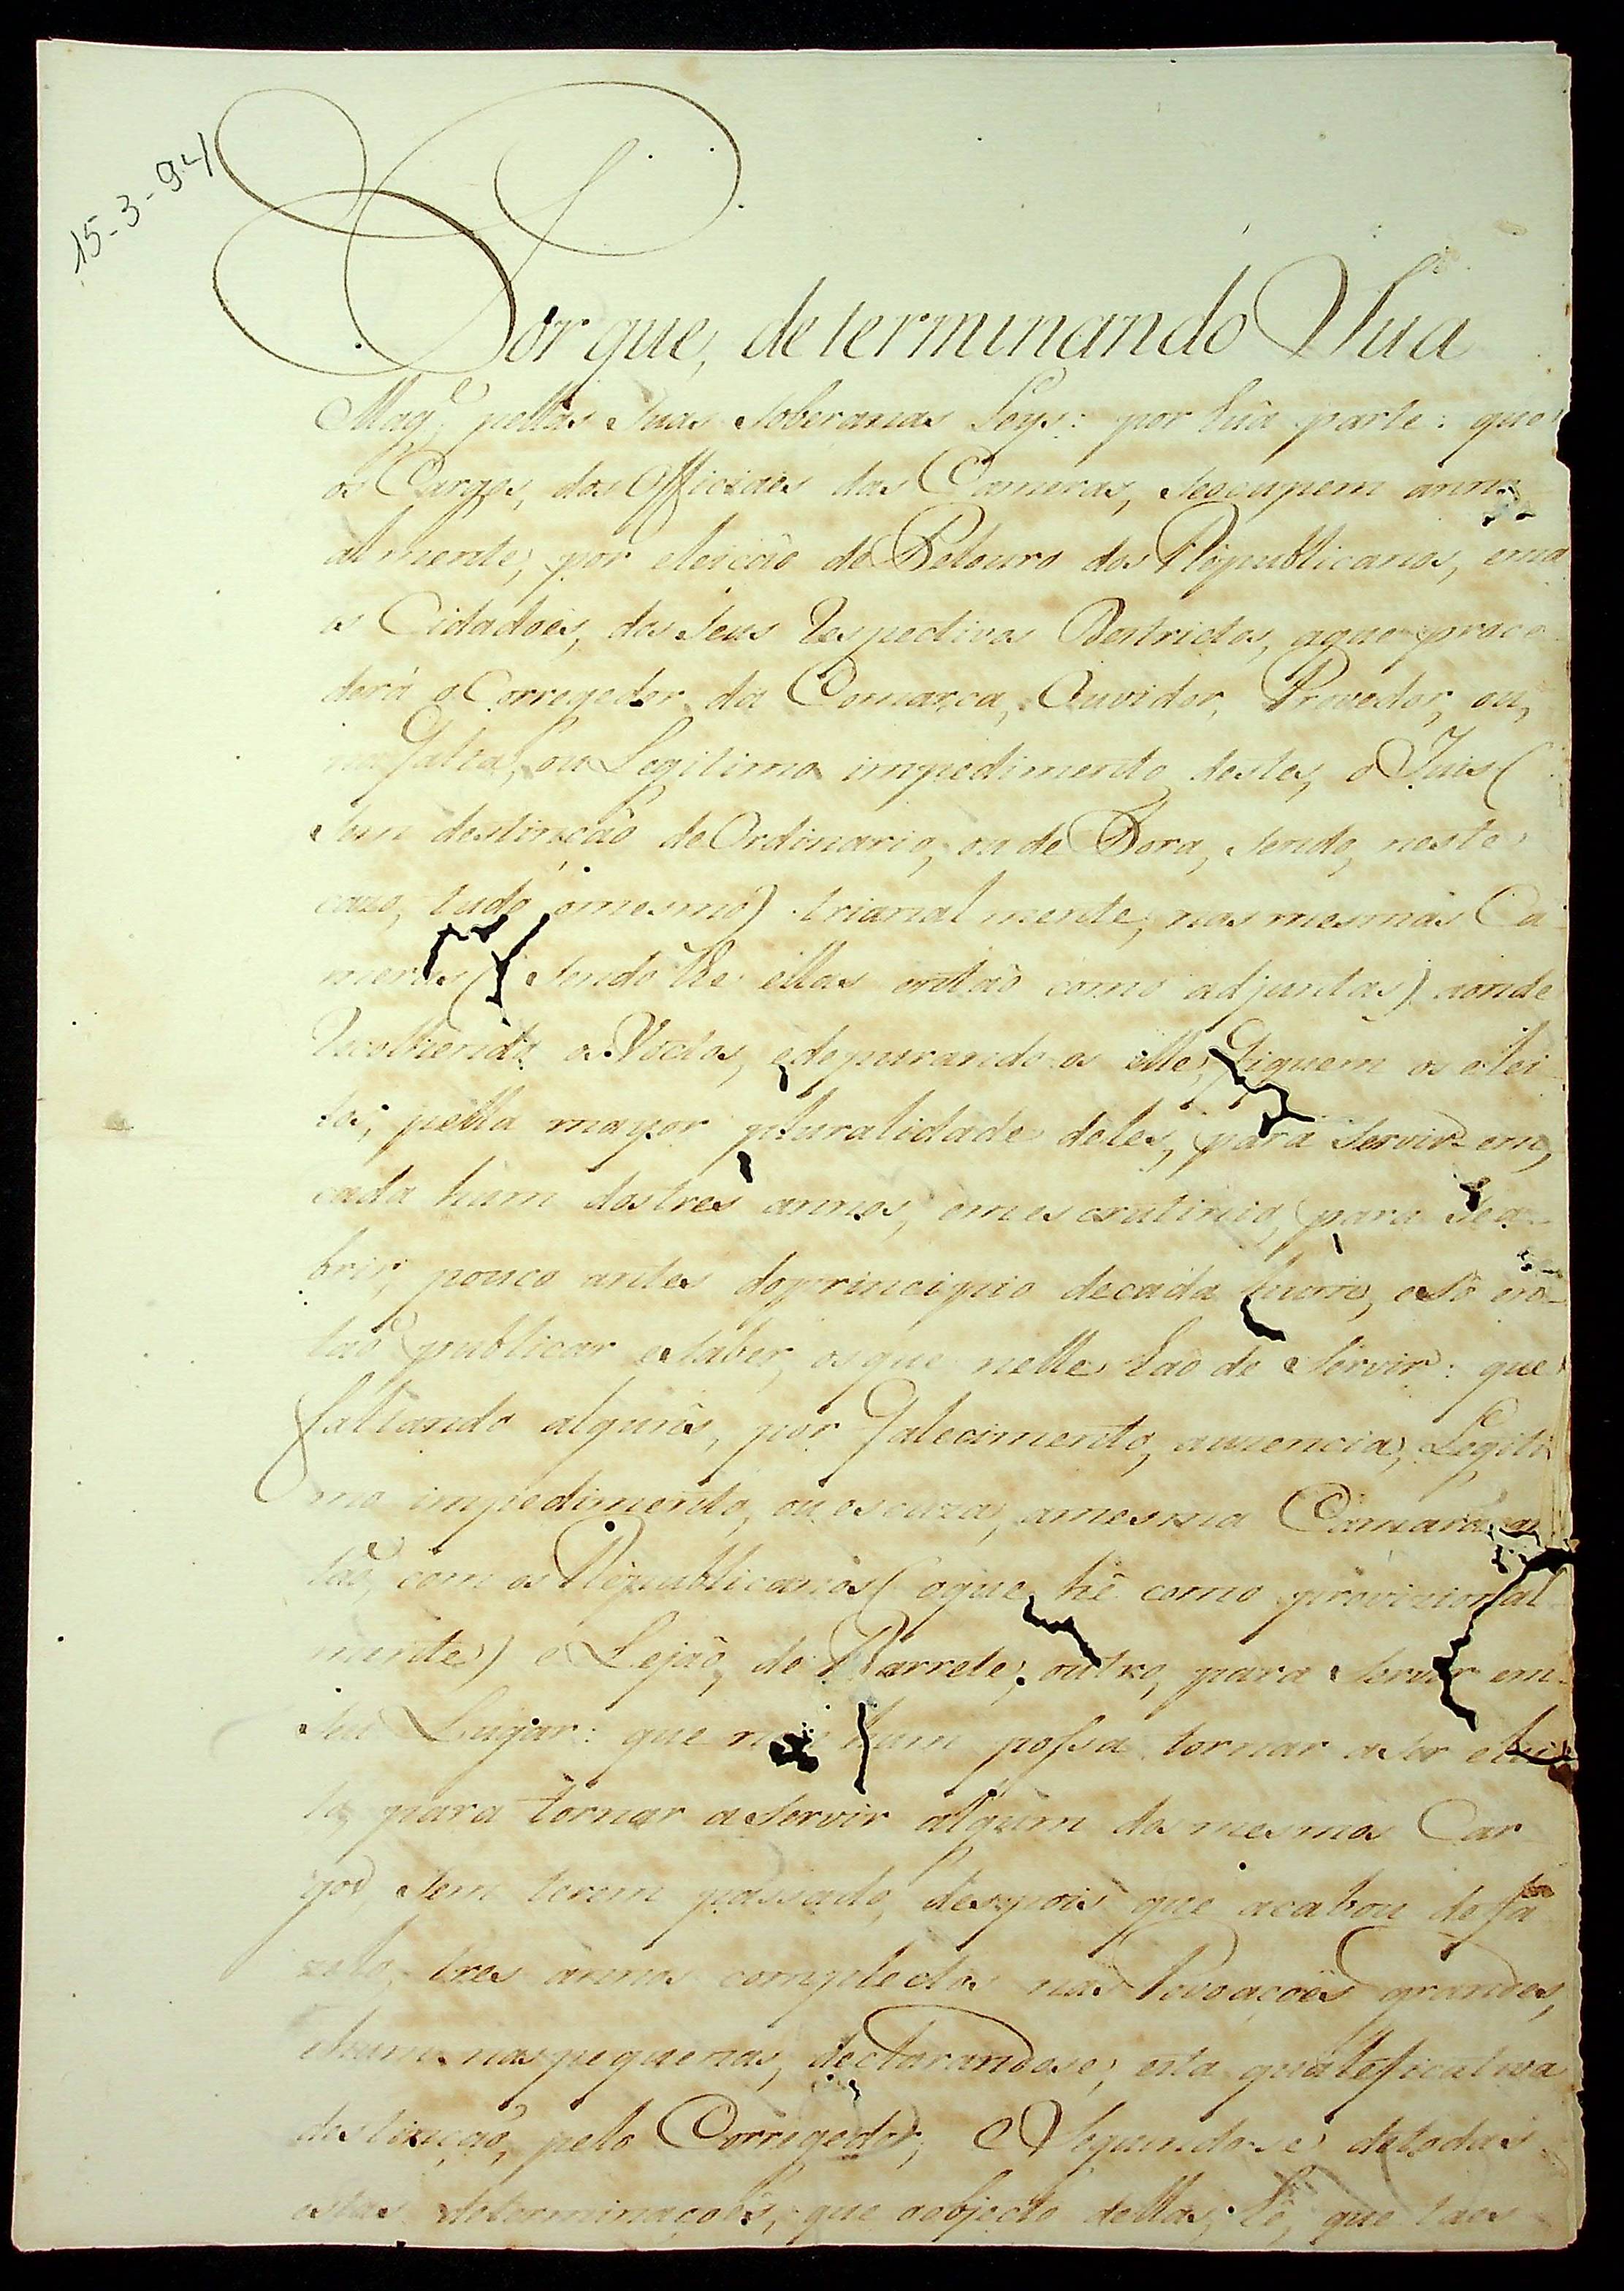 15-3-94
Por que, determinando Sua
Mag.e pellas Suas Soberanas Leys: por hũa parte: que
os Cargos, dos Officiaes das Cameras, seocupem annu
almente, por eleição de Pelouro dos Républicanos, ema
is Cidadoẽs, dos Seus respectivos Destrictos, aque proce
derá o Corregedor da Comarca, Ouvidor, Provedor, ou,
na falta, ou Legitimo impedimento destes, o Juis (
Sem destinção de Ordinario, ou de Fora, sendo, neste
cazo, tudo omesmo) trianalmente, nas mesmas Ca
meras ( Sendo lhe ellas então como adjuntas) aonde
recolhendo os Vottos, edepurando os elle, fiquem os elei
tos, pella mayor pluralidade deles, para Servir em,
cada hum dos tres annos, emescrutinio, para Se a-
brir, pouco antes doprincipio decada hum, eSó en-
taõ publicar eSaber, osque nelle haõ de Servir: que
faltando alguñs, por falecimento, auzencia, Legiti
mo impedimento, ou escuza, amesma Camara, en
taõ, com os Républicanos ( oque hé como provizional-
mente) eLejaõ, de Barrete, outro, para Servir em
Seu Lugar: que nem hum possa tornar aSer elei
to, para tornar aServir algum dos mesmos Car
gos, Sem terem passado, despois que acabou defa
zelo, tres annos complectos nas Povoaçoẽs grandes,
ehum nas pequenas, declarandose, esta qualeficativa
destinçaõ, pelo Corregedor; E Seguindose detodas
estas determinaçoẽs, que oobjecto dellas, hé, que taes